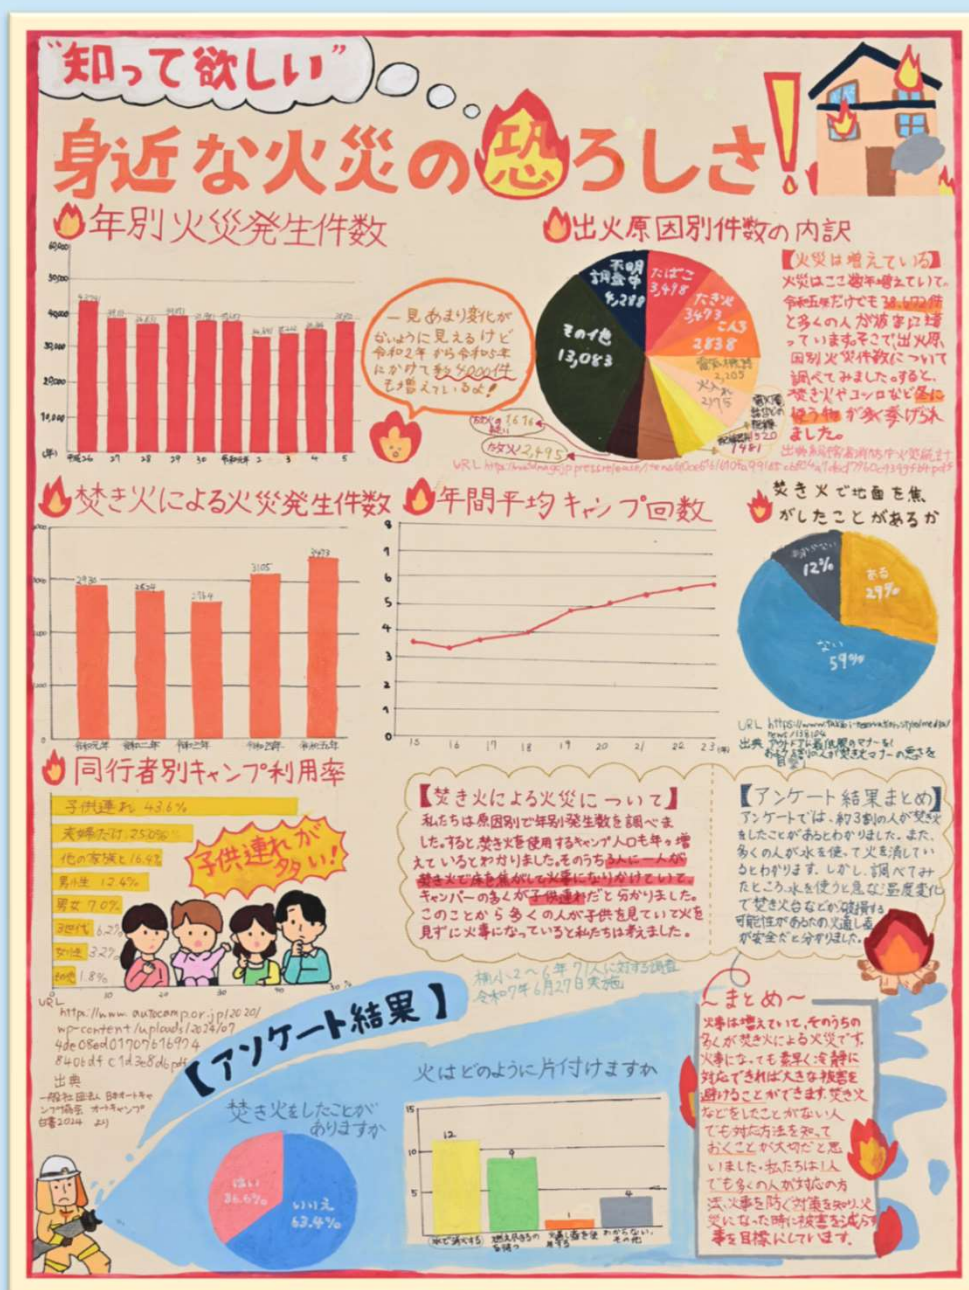 "知って欲しい"
身近な火災の恐ろしさ!
年別火災発生件数
60,000
50,000
40,000
30,000
20,000
10,000
平成26 27 28 29 30 令和元年 2 3 4 5
一見あまり変化が
ないように見えるけど
令和2年から令和5年
にかけて約4000件
も増えているよ!
出火原因別件数の内訳
たばこ
3,498
たき火
3,473
こんろ
2838
火入れ
その他
13,083
不明
調査中
4,288
【火災は増えている】
火災はここ数年増えていて、
令和五年だけでも38,672件
と多くの人が被害に遭
っています。そこで出火原
因別火災件数について
調べてみました。すると、
焚き火やコンロなど冬に
使う物が多く挙げられ
ました。
焚き火による火災発生件数
2930
2824
2764
3105
3473
令和元年 令和二年 令和三年 令和四年 令和五年
年間平均キャンプ回数
8
7
6
5
4
3
2
1
0
15 16 17 18 19 20 21 22 23(年)
焚き火で地面を焦
がしたことがあるか
ある
29%
ない
59%
12%
同行者別キャンプ利用率
子供連れ 43.6%
夫婦だけ 25.0%
他の家族と 16.4%
男小生 12.4%
男女 7.0%
3世代 6.2%
女性 3.2%
1.8%
子供連れが
多い!
URL
http://www.autocamp.or.jp/2020/
wp-content/uploads/2024/07
出典
一般社団法人 日本オートキャ
ンプ協会 オートキャンプ
白書2024 より
【焚き火による火災について】
私たちは原因別で年別発生数を調べま
した。すると、焚き火を使用するキャンプ人口も年々増
えているとわかりました。そのうち3人に一人が
焚き火で床を焦がして火事になりかけていて、
キャンパーの多くが子供連れだと分かりました。
このことから多くの人が子供を見ていて火を
見ずに火事になっていると私たちは考えました。
【アンケート結果まとめ】
アンケートでは、約3割の人が焚き火
をしたことがあるとわかりました。また、
多くの人が水を使って火を消してい
るとわかります。しかし、調べてみ
たところ、水を使うと急な温度変化
で焚き火台などが破損する
可能性があるため火消し壺
が安全だと分かりました。
小2〜6年71人に対する調査
令和7年6月27日実施
【アンケート結果】
焚き火をしたことが
ありますか
はい
36.6%
いいえ
63.4%
火はどのように片付けますか
15
10
5
12
9
1
4
水で消火する
燃え尽きるの
を待つ
火消し壺を使
用する
わからない、
その他
〜まとめ〜
火事は増えていて、そのうちの
多くが焚き火による火災です。
火事になっても素早く冷静に
対応できれば大きな被害を
避けることができます。焚き火
などをしたことがない人
でも対応方法を知って
おくことが大切だと思
いました。私たちは1人
でも多くの人が対応の方
法、火事を防ぐ対策を知り、火
災になった時に被害を減らす
事を目標にしています。